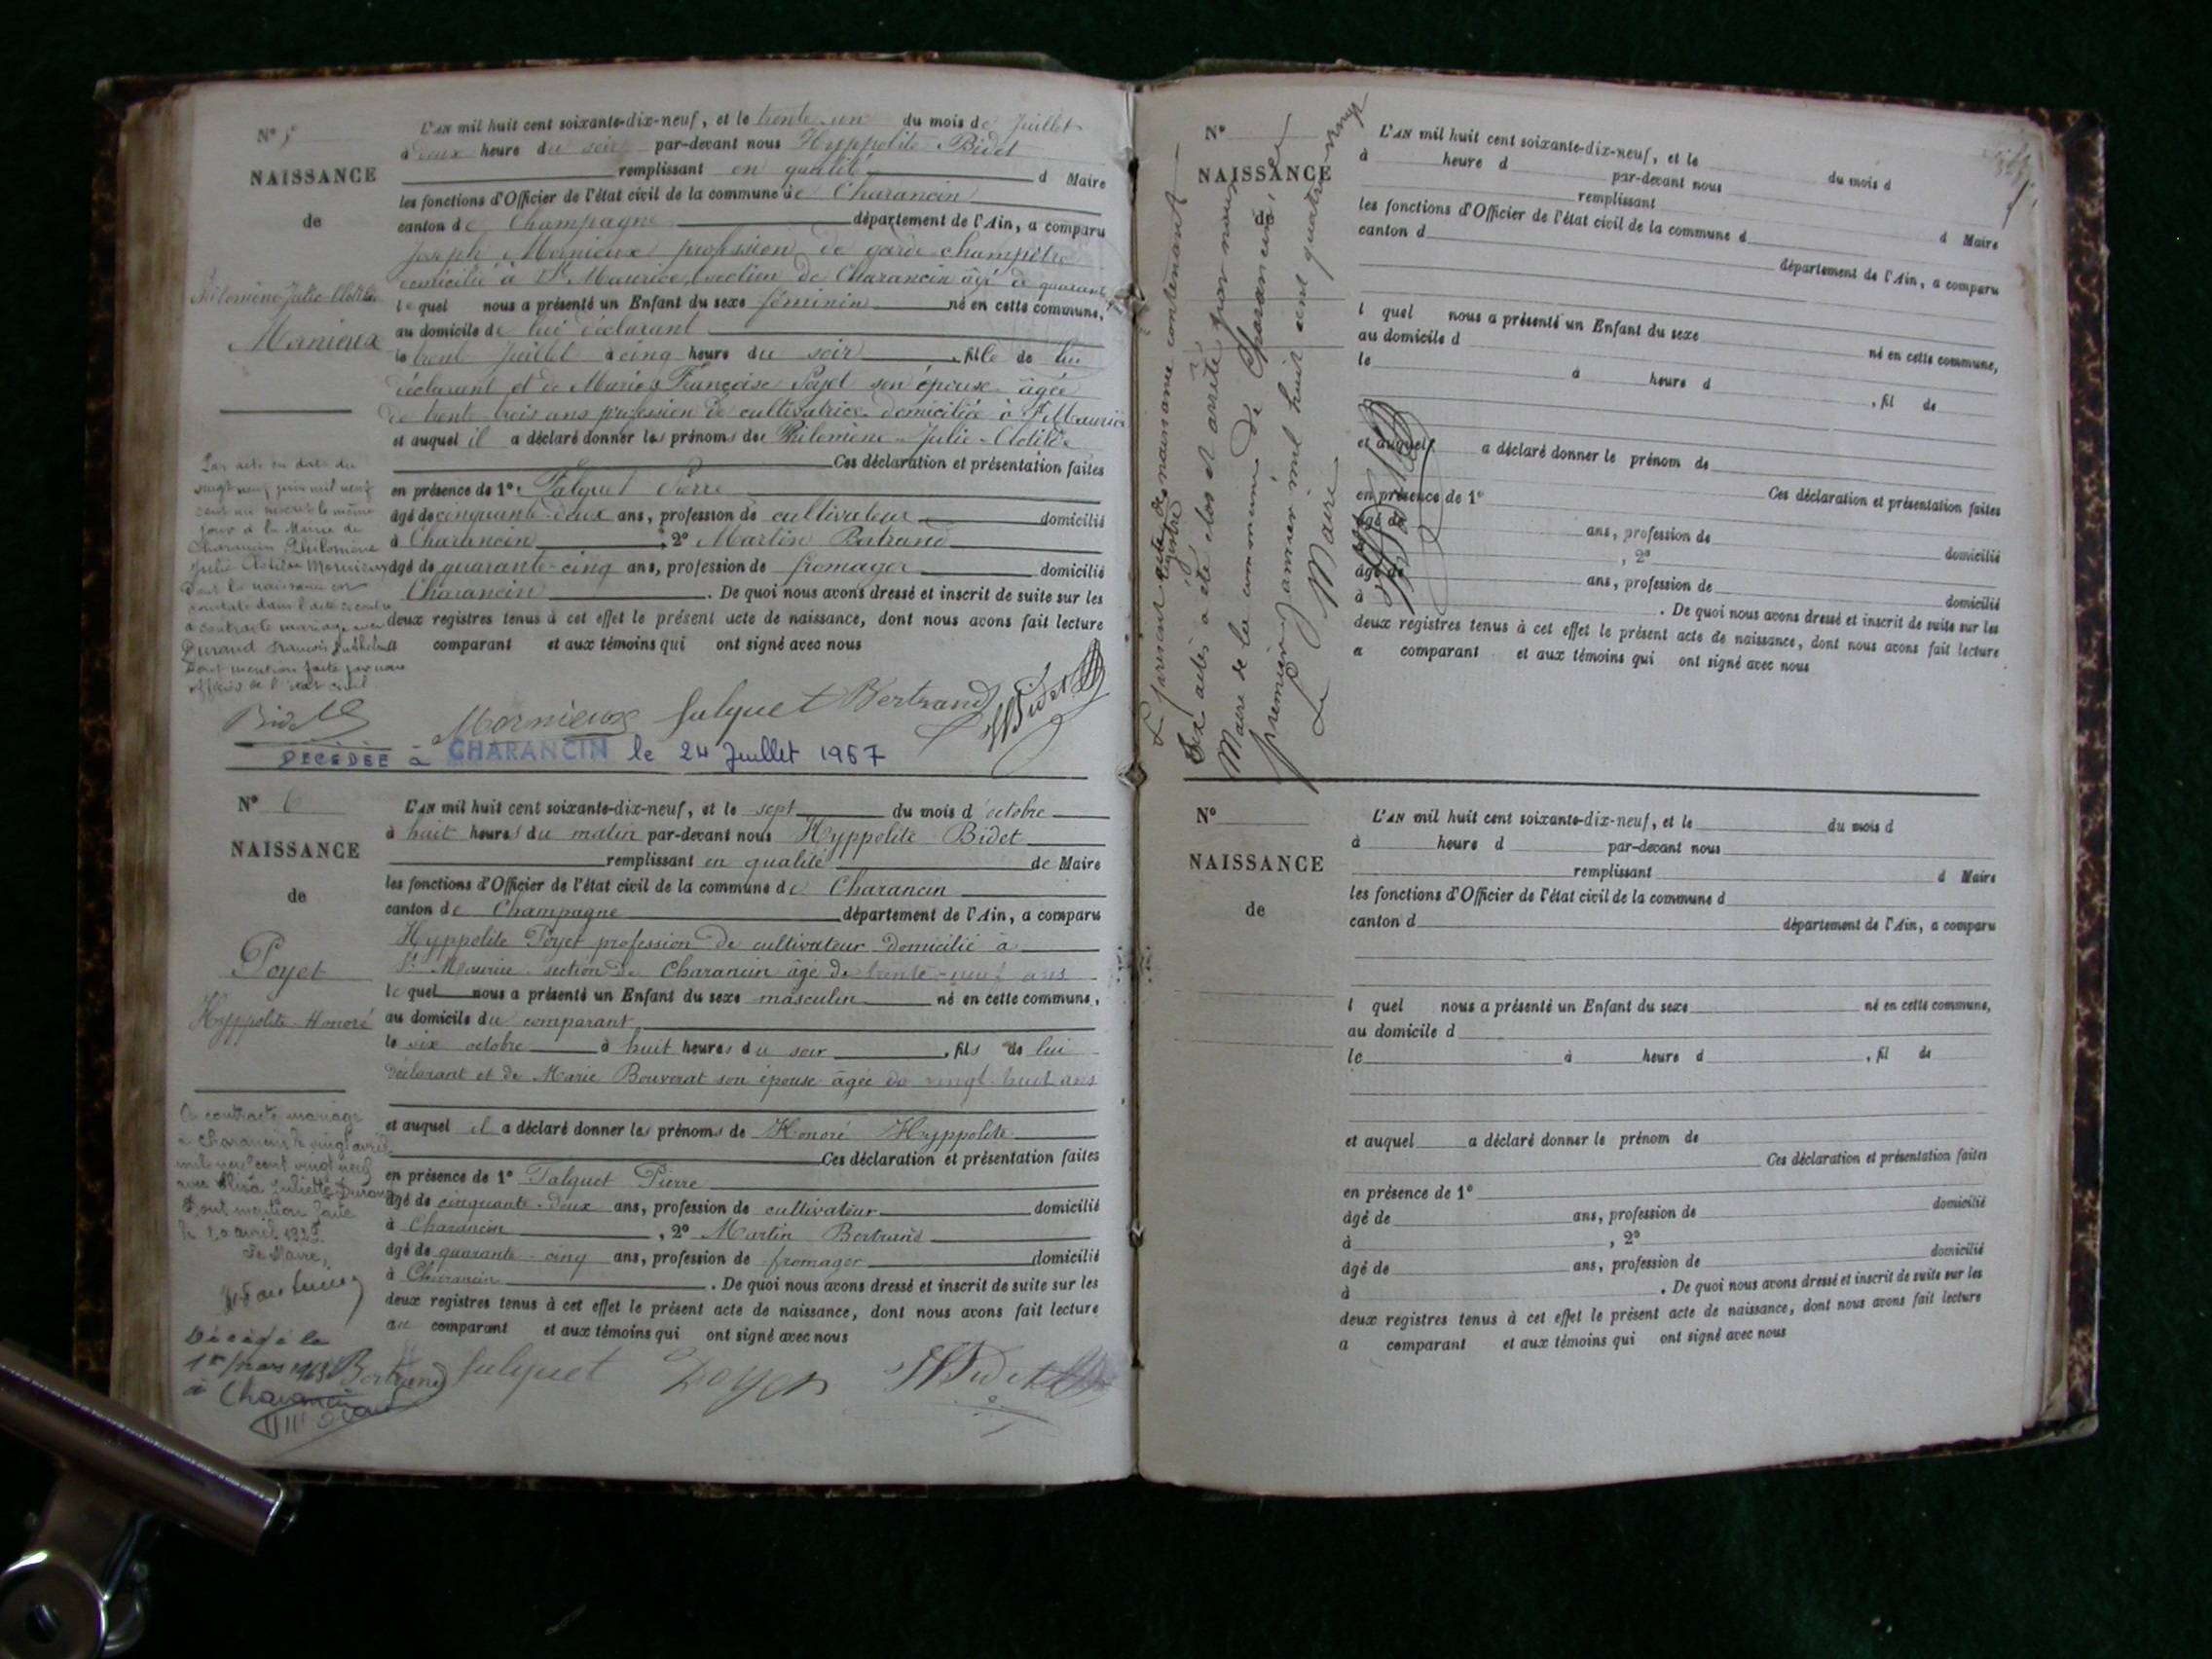 N° 5
NAISSANCE
de
Philomène-Julie-Clotilde
Mornieux
L'AN mil huit cent soixante-dix-neuf, et le trente-un du mois de Juillet
à deux heure du soir par-devant nous Hyppolite Bidet
remplissant en qualité d Maire
les fonctions d'Officier de l'état civil de la commune de Charancin
canton de Champagne département de l'Ain, a comparu
Joseph Mornieux profession de garde-champêtre
domicilié à St Maurice, section de Charancin âgé de quarante
le quel nous a présenté un Enfant du sexe féminin né en cette commune,
au domicile de lui déclarant
le trente Juillet à cinq heure du soir, fille de lui
déclarant et de Marie Françoise Poyet son épouse âgée
de trente trois ans profession de cultivatrice domiciliée à St Maurice
et auquel il a déclaré donner les prénoms de Philomène-Julie-Clotilde
Ces déclaration et présentation faites
en présence de 1° Falquet Pierre
âgé de cinquante-deux ans, profession de cultivateur domicilié
à Charancin, 2° Martin Bertrand
âgé de quarante-cinq ans, profession de fromager domicilié
Charancin. De quoi nous avons dressé et inscrit de suite sur les
deux registres tenus à cet effet le présent acte de naissance, dont nous avons fait lecture
a comparant et aux témoins qui ont signé avec nous
Par acte en date du
vingt neuf juin mil neuf
cent un inscrit le même
jour à la Mairie de
Charancin Philomène
Julie Clotilde Mornieux
dont la naissance est
constatée dans l'acte ci contre
a contracté mariage avec
Durand François
Dont mention faite par nous
officier de l'état civil
Bidet
Mornieux Falquet Bertrand HBidet
DÉCÉDÉE à CHARANCIN le 24 Juillet 1967
N° 6
NAISSANCE
de
Poyet
Hyppolite-Honoré
L'AN mil huit cent soixante-dix-neuf, et le sept du mois d'octobre
à huit heures du matin par-devant nous Hyppolite Bidet
remplissant en qualité de Maire
les fonctions d'Officier de l'état civil de la commune de Charancin
canton de Champagne département de l'Ain, a comparu
Hyppolite Poyet profession de cultivateur domicilié à
St Maurice section de Charancin âgé de trente-neuf ans
le quel nous a présenté un Enfant du sexe masculin né en cette commune,
au domicile du comparant
le six octobre à huit heures du soir, fils de lui
déclarant et de Marie Bouverat son épouse âgée de vingt-huit ans
et auquel il a déclaré donner les prénoms de Honoré Hyppolite
Ces déclaration et présentation faites
en présence de 1° Falquet Pierre
âgé de cinquante-deux ans, profession de cultivateur domicilié
à Charancin, 2° Martin Bertrand
âgé de quarante-cinq ans, profession de fromager domicilié
à Charancin. De quoi nous avons dressé et inscrit de suite sur les
deux registres tenus à cet effet le présent acte de naissance, dont nous avons fait lecture
au comparant et aux témoins qui ont signé avec nous
A contracté mariage
à Charancin le vingt avril
mil neuf cent vingt neuf
avec Elisa Juliette Durand
Dont mention faite
le 20 avril 1929
Le Maire,
Décédé le
1er mars 1963
à Charancin
Bertrand Falquet Poyet HBidet
Le présent registre de naissance contenant
Six actes a été clos et arrêté par nous
Maire de la commune de Charancin, le
premier Janvier mil huit cent quatre-vingt
Le Maire
N°
NAISSANCE
de
L'AN mil huit cent soixante-dix-neuf, et le du mois d
à heure d par-devant nous
remplissant d Maire
les fonctions d'Officier de l'état civil de la commune d
canton d département de l'Ain, a comparu
l quel nous a présenté un Enfant du sexe né en cette commune,
au domicile d
le à heure d , fil de
et auquel a déclaré donner le prénom de
Ces déclaration et présentation faites
en présence de 1°
âgé de ans, profession de domicilié
, 2°
âgé de ans, profession de domicilié
à . De quoi nous avons dressé et inscrit de suite sur les
deux registres tenus à cet effet le présent acte de naissance, dont nous avons fait lecture
a comparant et aux témoins qui ont signé avec nous
N°
NAISSANCE
de
L'AN mil huit cent soixante-dix-neuf, et le du mois d
à heure d par-devant nous
remplissant d Maire
les fonctions d'Officier de l'état civil de la commune d
canton d département de l'Ain, a comparu
l quel nous a présenté un Enfant du sexe né en cette commune,
au domicile d
le à heure d , fil de
et auquel a déclaré donner le prénom de
Ces déclaration et présentation faites
en présence de 1°
âgé de ans, profession de domicilié
à , 2°
âgé de ans, profession de domicilié
à . De quoi nous avons dressé et inscrit de suite sur les
deux registres tenus à cet effet le présent acte de naissance, dont nous avons fait lecture
a comparant et aux témoins qui ont signé avec nous